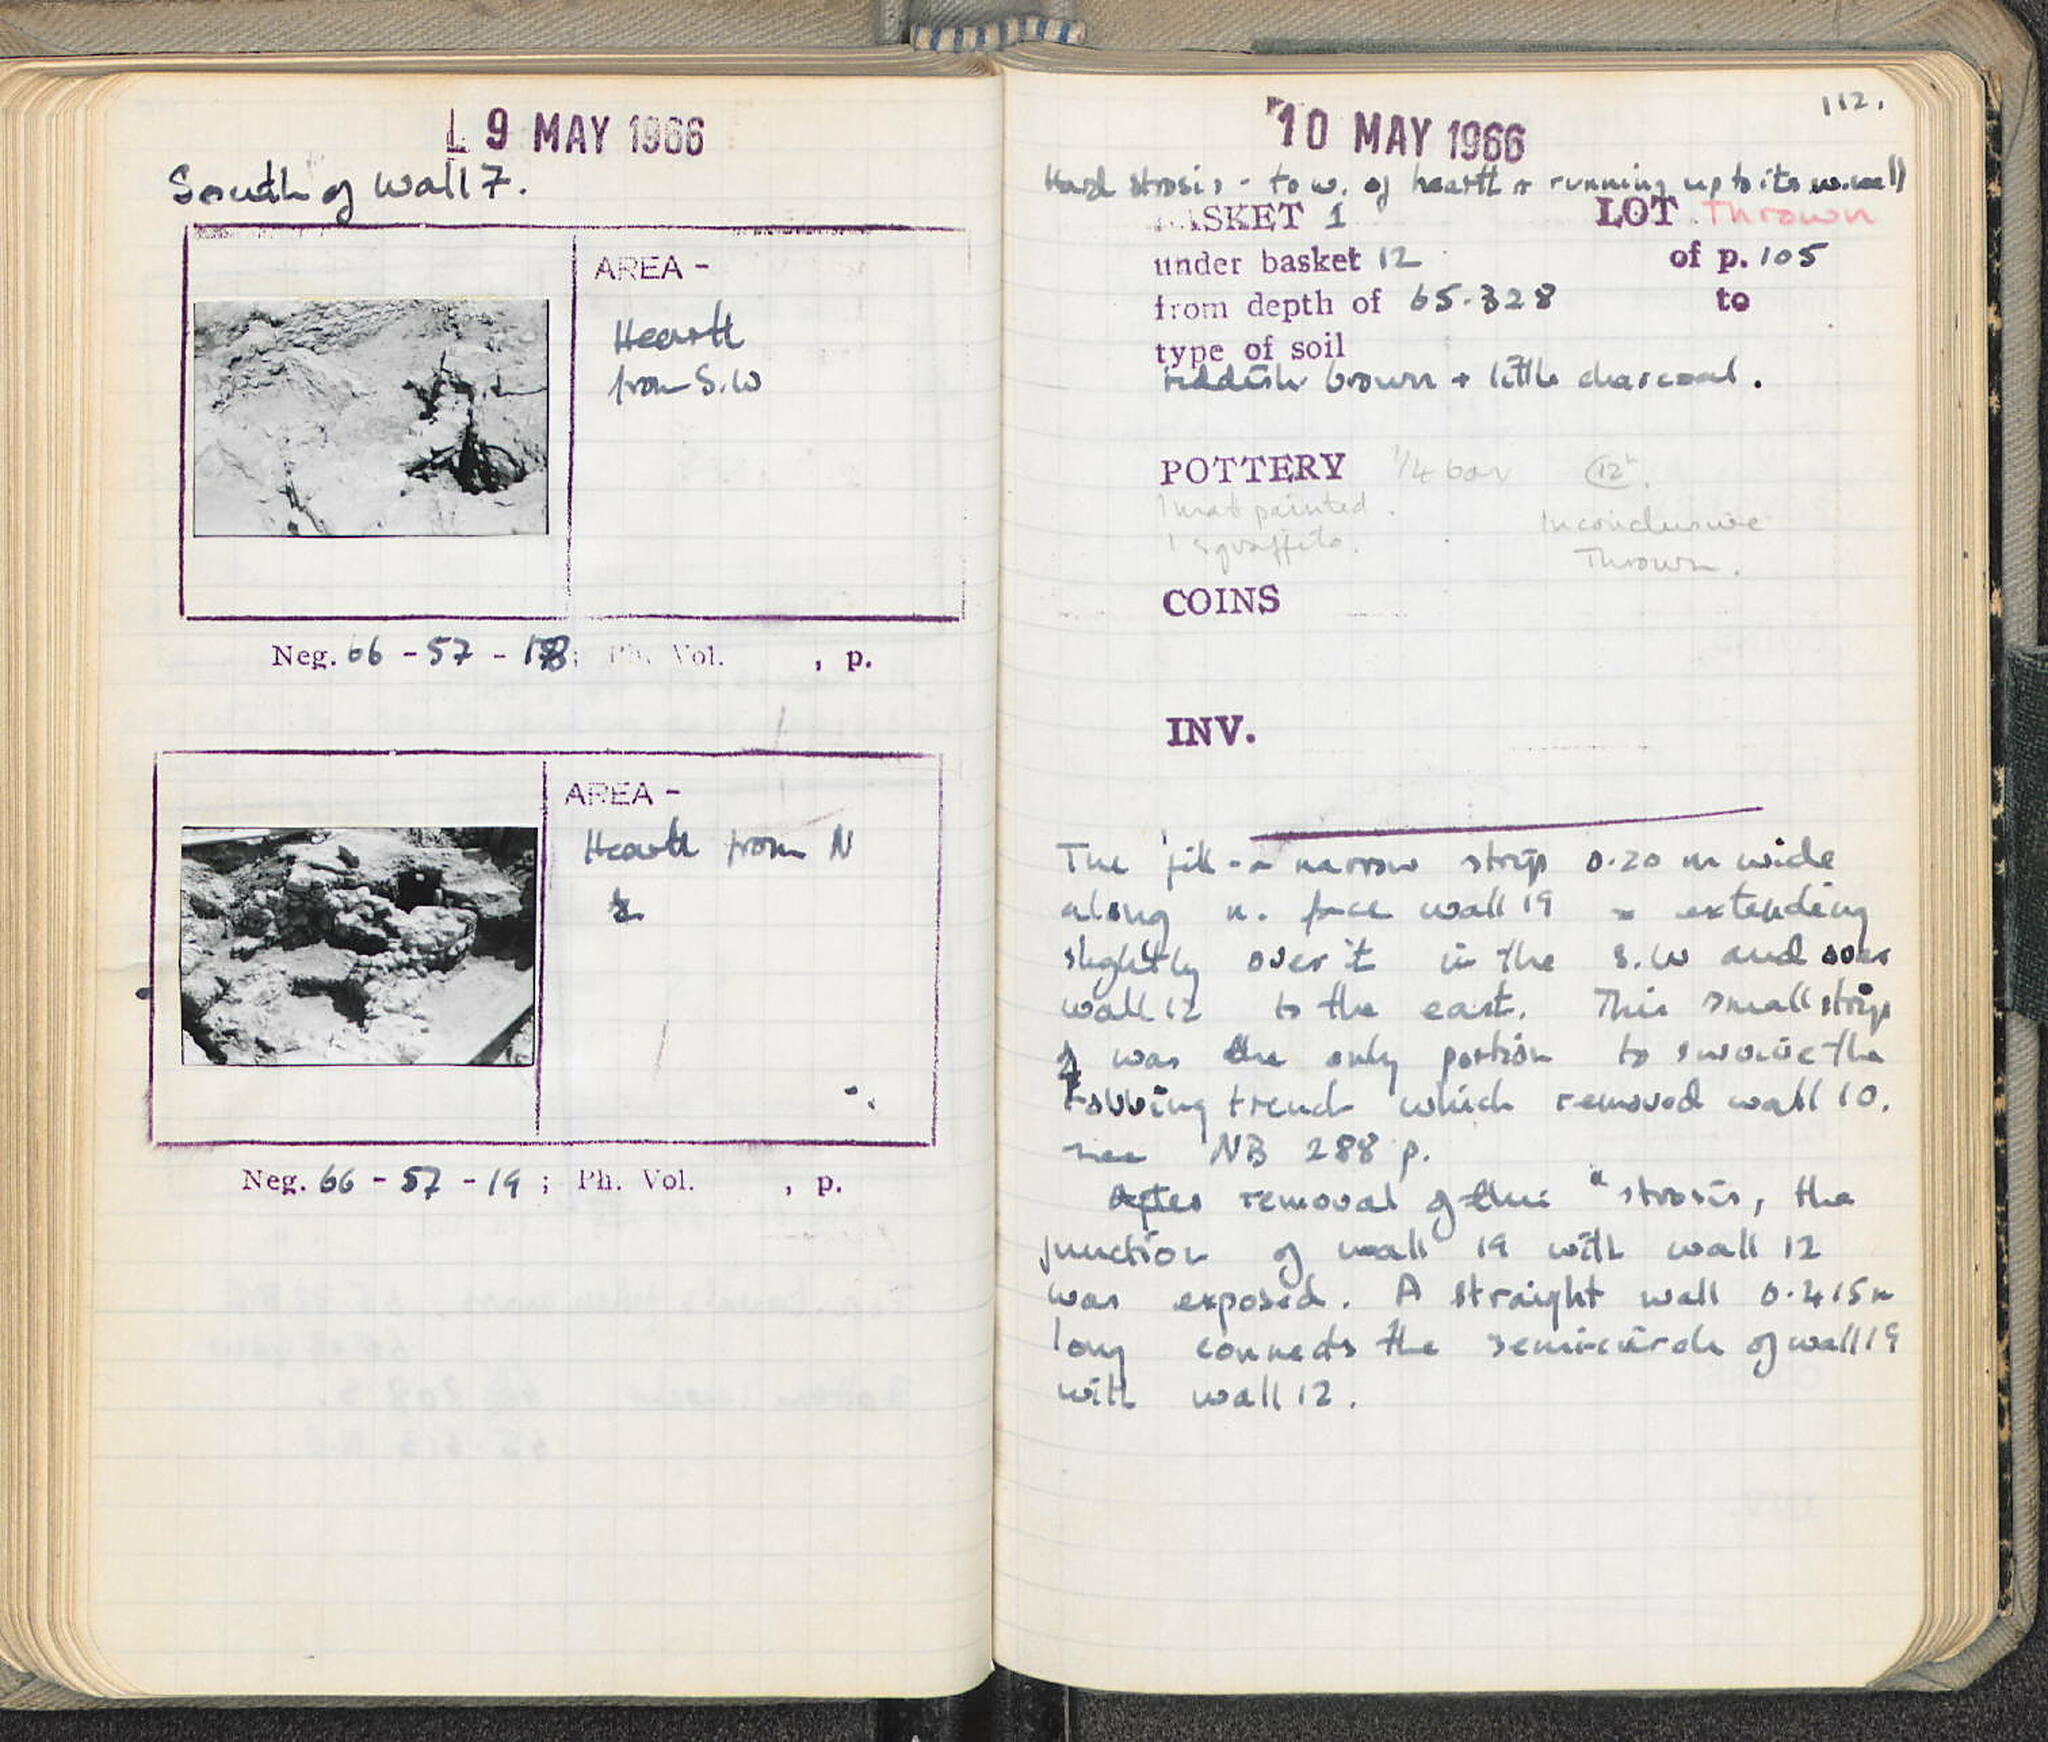 9 MAY 1966
South of wall 7.
AREA -
Hearth
from S.W
Neg. 66 - 57 - 18; Ph. Vol. , p.
AREA -
Hearth from N
Neg. 66 - 57 - 19 ; Ph. Vol. , p.
112.
10 MAY 1966
Hard strosis - to w. of hearth + running up to its w. wall
BASKET 1 LOT Thrown
under basket 12 of p. 105
from depth of 65.328 to
type of soil
reddish brown + little charcoal.
POTTERY 1/4 box 12th.
1 mat painted. Inconclusive
1 sgraffito. Thrown.
COINS
INV.
The fill - a narrow strip 0.20 m wide
along n. face wall 19 extending
slightly over it in the S.W and over
wall 12 to the east. This small strip
was the only portion to survive the
robbing trench which removed wall 10.
see NB 288 p.
After removal of this "strosis, the
junction of wall 19 with wall 12
was exposed. A straight wall 0.415m
long connects the semi-circle of wall 19
with wall 12.